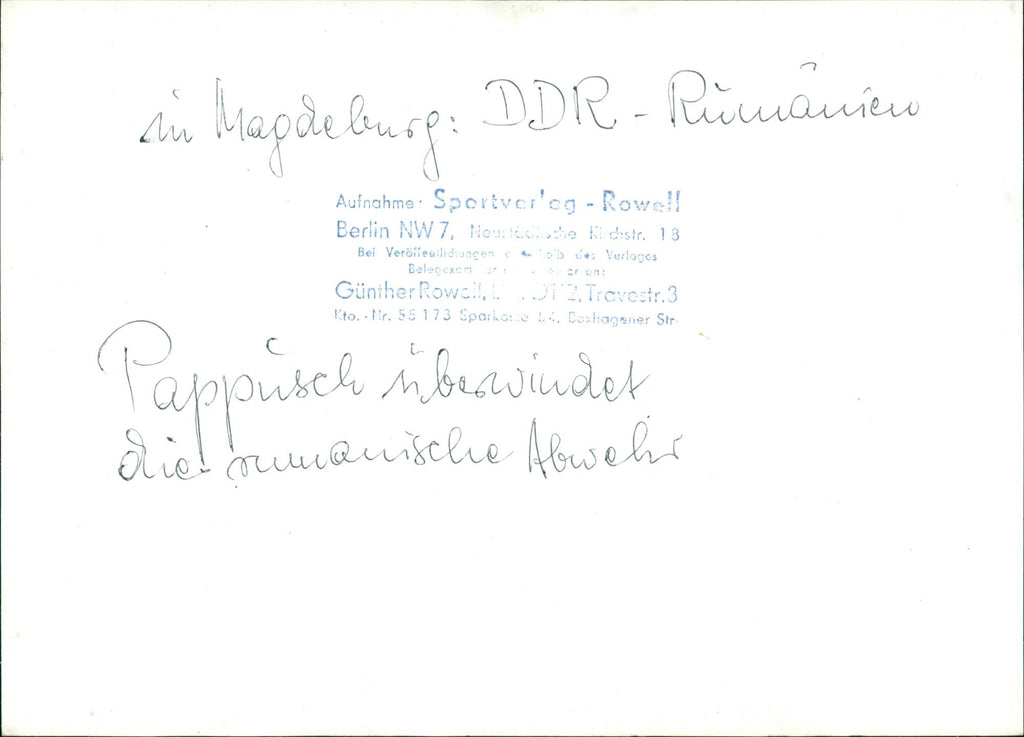 in Magdeburg: DDR - Rumänien
Aufnahme: Sportverlag - Rowell
Berlin NW 7, Neustädtische Kirchstr. 18
Bei Veröffentlichungen des Verlages
Günther Rowell, Travestr. 3
Kto.-Nr. 55 173 Sparkasse Boxhagener Str.
Pappusch überwindet
die rumanische Abwehr